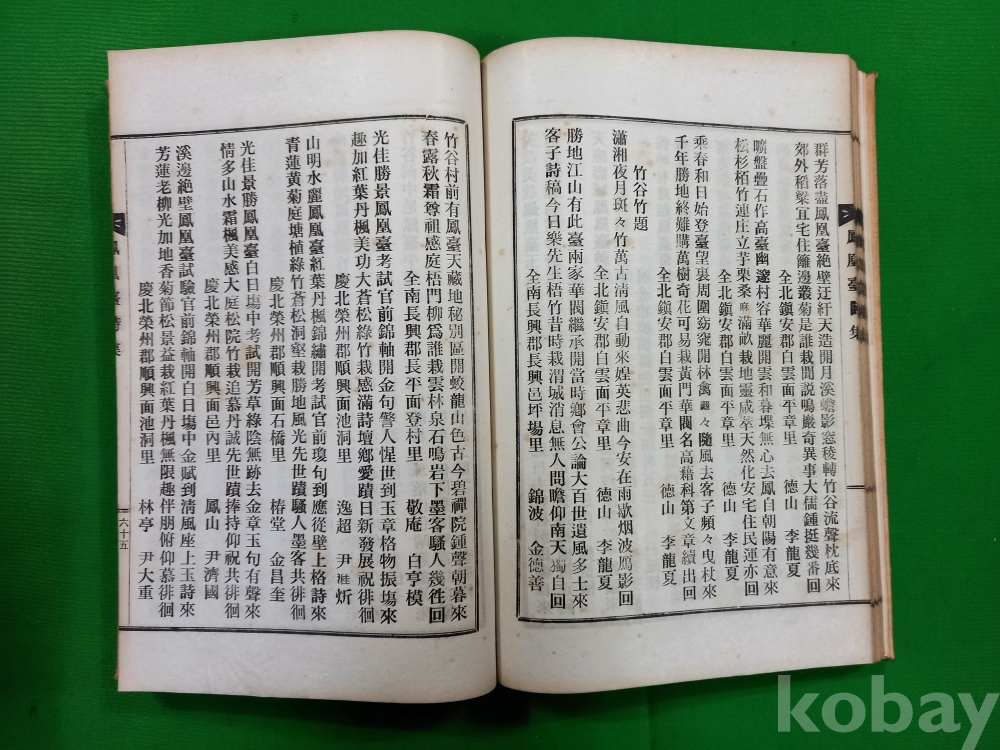 群芳落盡鳳凰臺絕壁迂紆天造開月溪蟾影窓稜轉竹谷流聲枕底來
郊外稻粱宜宅住籬邊叢菊是誰栽閒說鳴巖奇異事大儒鍾挺幾番回
全北鎭安郡白雲面平章里 德山 李龍夏
嚝盤疊石作高臺幽邃村容華麗開雲和暮堞無心去鳳自朝陽有意來
松杉栢竹連庄立芋栗桑麻滿畝栽地靈咸萃天然化安宅住民運亦回
全北鎭安郡白雲面平章里 德山 李龍夏
乘春和日始登臺望裏周圍窈窕開林禽趐々隨風去客子頻々曳杖來
千年勝地終難購萬樹奇花可易栽黃門華閥名高藉科第文章續出回
全北鎭安郡白雲面平章里 德山 李龍夏
竹谷竹題
瀟湘夜月斑々竹萬古淸風自動來娙英悲曲今安在雨歇烟波鴈影回
全北鎭安郡白雲面平章里 德山 李龍夏
勝地江山有此臺兩家華閥繼承開當時鄉會公論大百世遺風多士來
客子詩稿今日樂先生梧竹昔時栽渭城消息無人問瞻仰南天獨自回
全南長興郡長興邑坪場里 錦波 金德善
鳳凰臺 集
竹谷村前有鳳臺天藏地秘別區開蛟龍出色古今碧禪院鍾聲朝暮來
春露秋霜尊祖感庭梧門柳爲誰栽雲林泉石鳴岩下墨客騷人幾徃回
全南長興郡長平面登村里 敬庵 白亨模
光佳勝景鳳凰臺考試官前錦軸開金句警人惺世到玉章格物振塲來
趣加紅葉丹楓美功大蒼松綠竹栽感滿詩壇鄉愛蹟日新發展祝徘徊
慶北榮州郡順興面池洞里 逸超 尹 炘
山明水麗鳳凰臺紅葉丹楓錦繡開考試官前瓊句到應從壁上格詩來
靑蓮黃菊庭塘植綠竹蒼松洞壑栽勝地風光先世蹟騷人墨客共徘徊
慶北榮州郡順興面石橋里 椿堂 金昌奎
光佳景勝鳳凰臺白日塲中考試開芳草綠陰無跡去金章玉句有聲來
情多山水霜楓美感大庭松院竹栽追慕丹誠先世蹟捧持仰祝共徘徊
慶北榮州郡順興面邑內里 鳳山 尹濟國
溪邊絕壁鳳凰臺試驗官前錦軸開白日塲中金賦到淸風座上玉詩來
芳蓮老柳光加地香菊節松景益栽紅葉丹楓無限趣伴朋俯仰慕徘徊
慶北榮州郡順興面池洞里 林亭 尹大重
鳳凰臺詩集
六十五
kobay